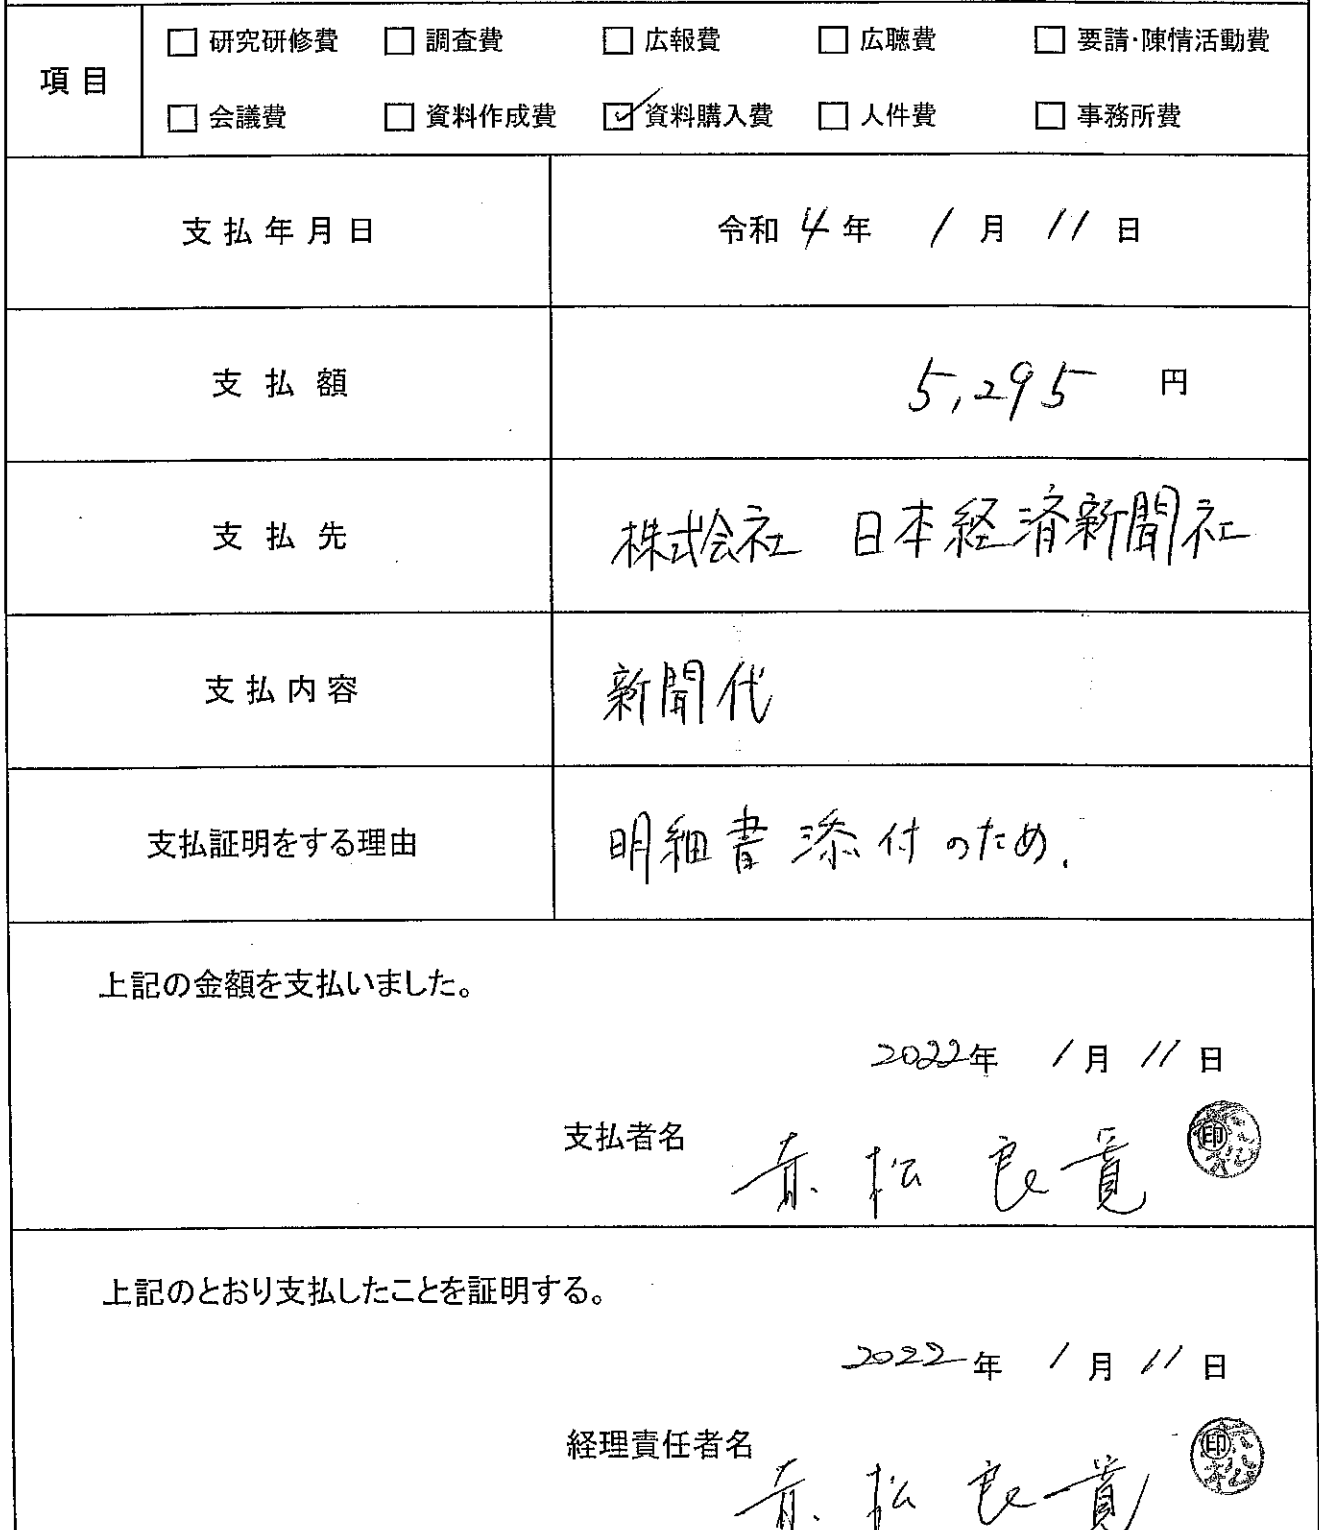 項目
□ 研究研修費 □ 調査費 □ 広報費 □ 広聴費 □ 要請・陳情活動費
□ 会議費 □ 資料作成費 ☑ 資料購入費 □ 人件費 □ 事務所費
支払年月日 令和 4 年 1 月 11 日
支払額 5,295 円
支払先 株式会社 日本経済新聞社
支払内容 新聞代
支払証明をする理由 明細書添付のため.
上記の金額を支払いました。
2022年 1月 11日
支払者名 赤松良寛 印
上記のとおり支払したことを証明する。
2022年 1月 11日
経理責任者名 赤松良寛 印